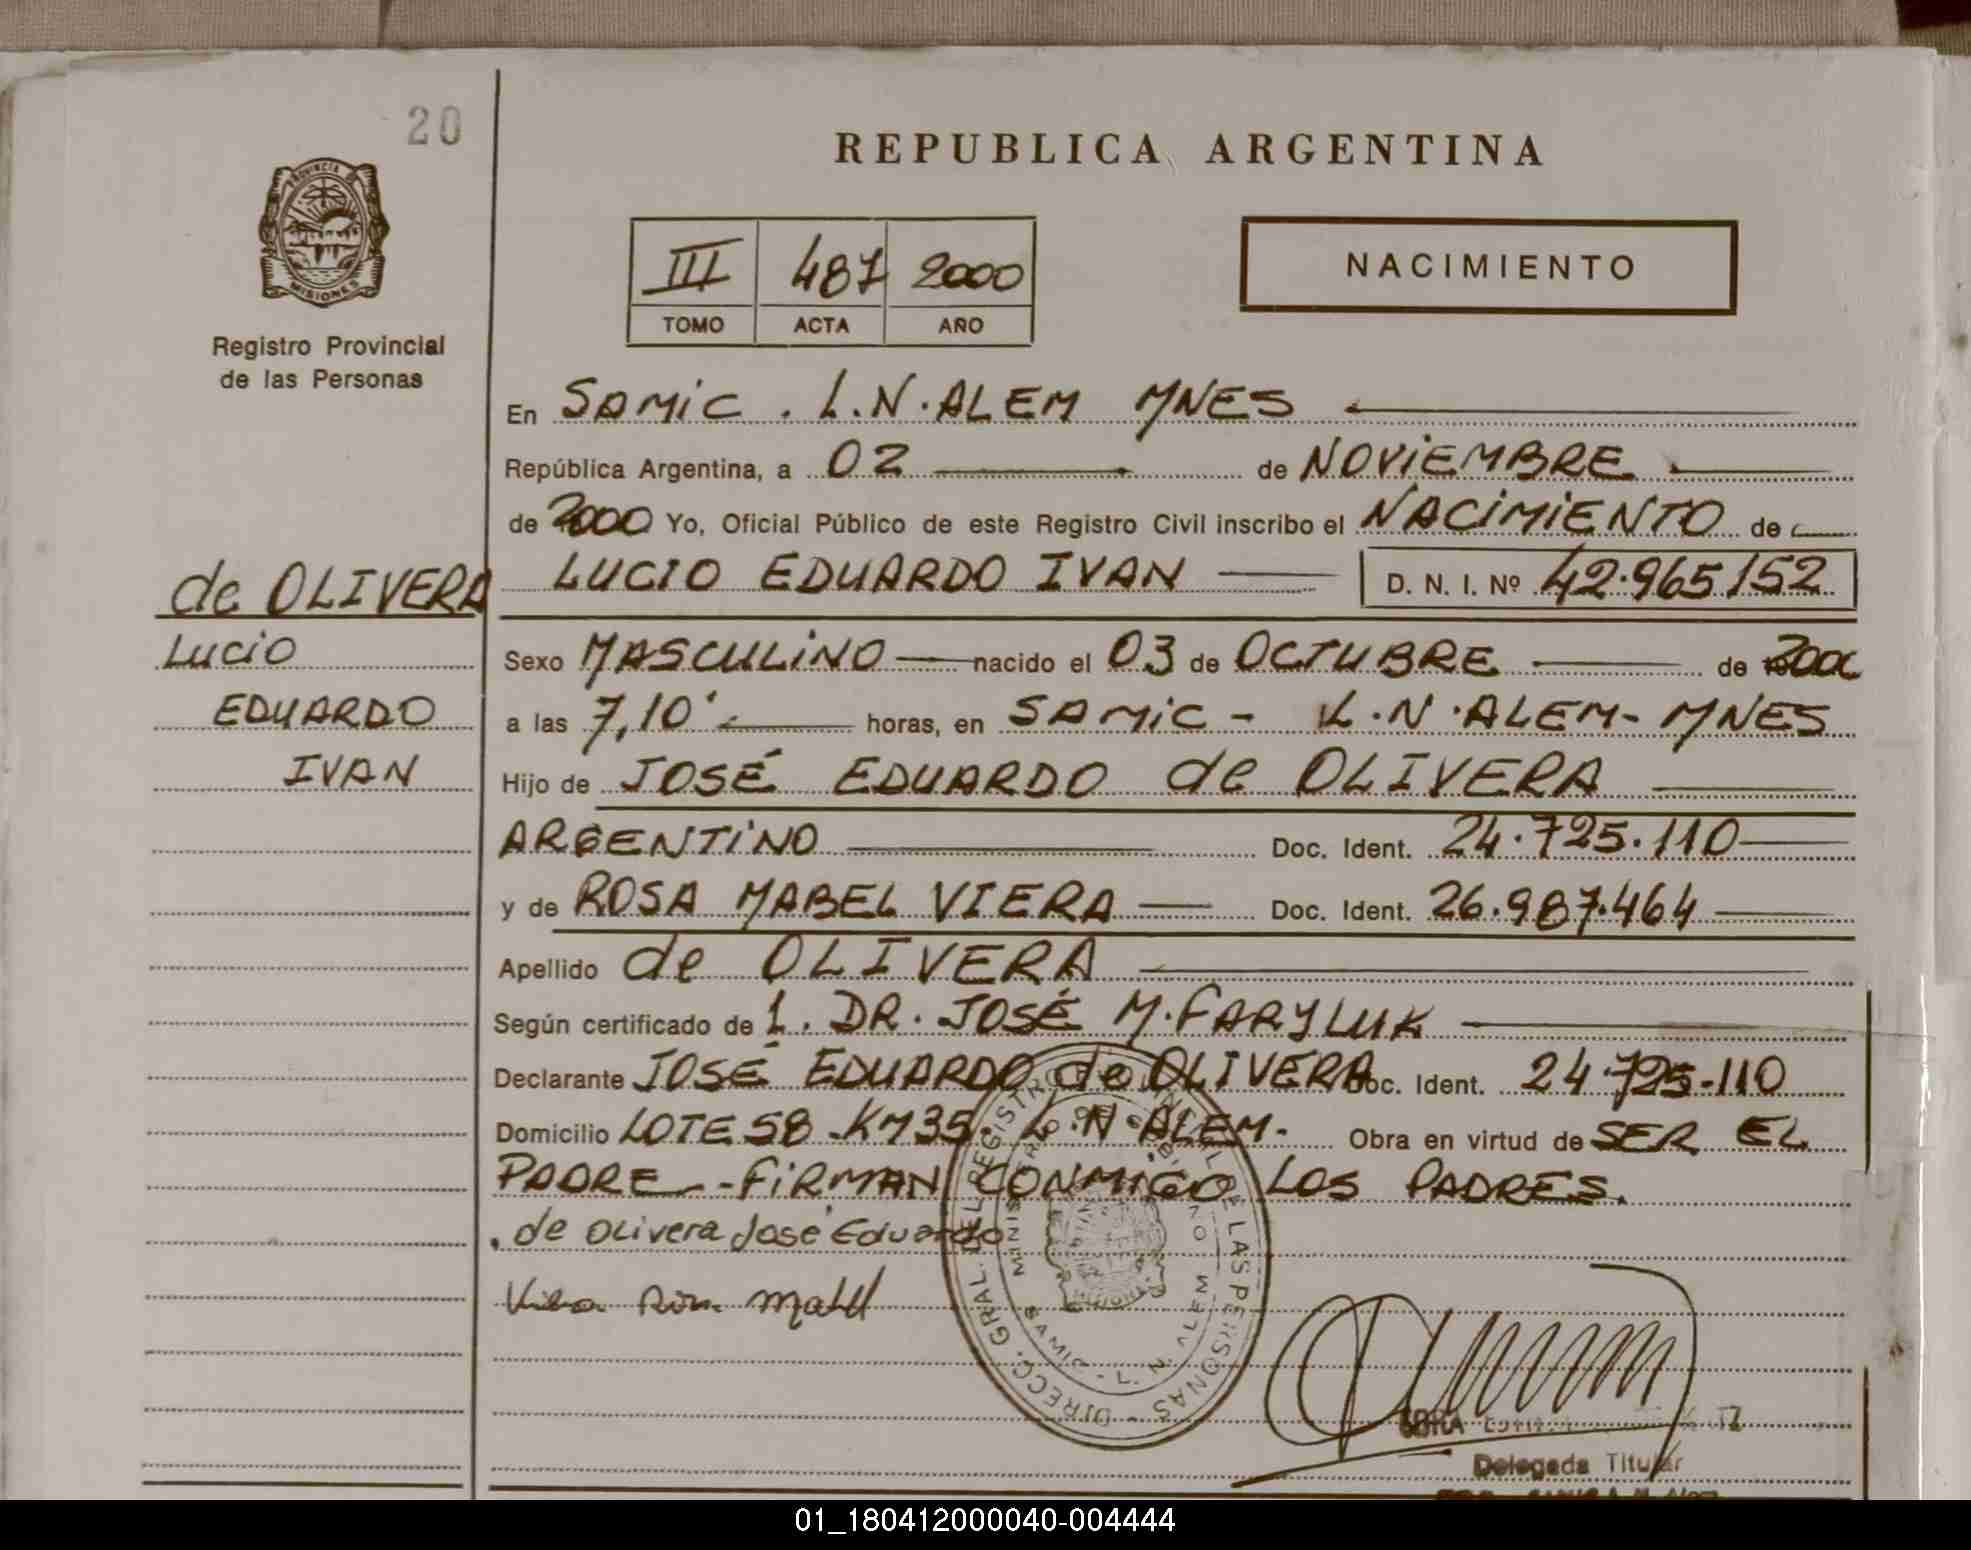 20
REPUBLICA ARGENTINA
PROVINCIA DE
MISIONES
Registro Provincial
de las Personas
III 487 2000
TOMO ACTA AÑO
NACIMIENTO
En SAMIC. L.N.ALEM MNES
República Argentina, a 02 de NOVIEMBRE
de 2000 Yo, Oficial Público de este Registro Civil inscribo el NACIMIENTO de
de OLIVERA LUCIO EDUARDO IVAN D. N. I. Nº 42.965152
Lucio
EDUARDO
IVAN
Sexo MASCULINO nacido el 03 de OCTUBRE de 2000
a las 7,10' horas, en SAMIC - L.N.ALEM- MNES
Hijo de JOSÉ EDUARDO de OLIVERA
ARGENTINO Doc. Ident. 24.725.110
y de ROSA MABEL VIERA Doc. Ident. 26.987.464
Apellido de OLIVERA
Según certificado de 1. DR. JOSÉ M. FARYLUK
Declarante JOSÉ EDUARDO de OLIVERA Doc. Ident. 24.725.110
Domicilio LOTE 58 -KM35- L.N ALEM- Obra en virtud de SER EL
PADRE - FIRMAN CONMIGO LOS PADRES.
. de Olivera José Eduardo
Viera Rosa Mabel
DIRECC. GRAL. DEL REGISTRO PROVINCIAL DE LAS PERSONAS
MINISTERIO DE GOBIERNO
SAMIC - L. N. ALEM
MISIONES
Delegada Titular
01_180412000040-004444